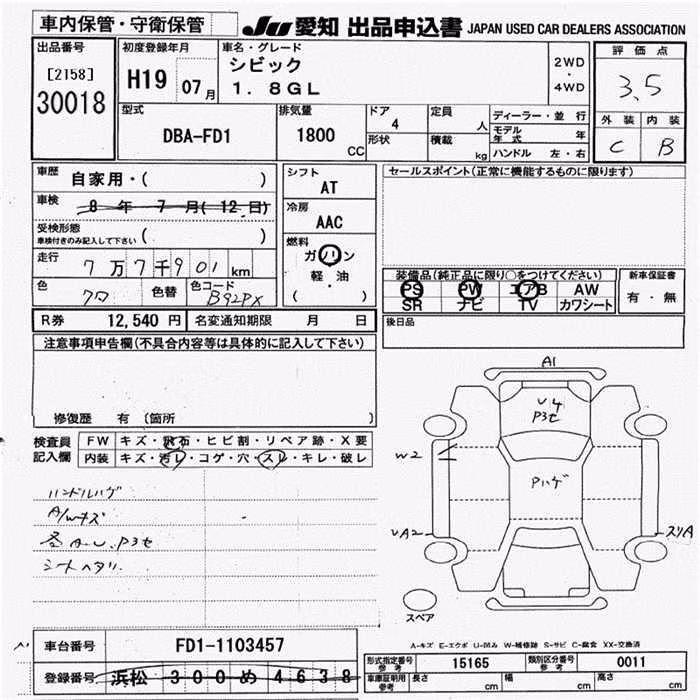 車内保管・守衛保管
JU 愛知 出品申込書 JAPAN USED CAR DEALERS ASSOCIATION
出品番号
[2158]
30018
初度登録年月
H19 07月
車名・グレード
シビック
1.8GL
2WD
・
4WD
評価点
3.5
外装 内装
C B
型式
DBA-FD1
排気量
1800
CC
ドア
4
形状
定員
人
積載
kg
ディーラー・並行
モデル年式 年
ハンドル 左・右
車歴
自家用・( )
車検
8年7月(12日)
受検形態
車検付きのみ記入して下さい ( )
走行
7万7千901km
色
クロ
色替
色コード
B92PX
シフト
AT
冷房
AAC
燃料
ガソリン
軽・油
( )
セールスポイント(正常に機能するものに限ります)
装備品(純正品に限り○をつけてください)
PS PW エアB AW
SR ナビ TV カワシート
新車保証書
有・無
後日品
R券 12,540円 名変通知期限 月 日
注意事項申告欄(不具合内容等は具体的に記入して下さい)
修復歴 有 (箇所 )
検査員
記入欄
FW キズ・飛石・ヒビ割・リペア跡・X要
内装 キズ・汚レ・コゲ・穴・スレ・キレ・破レ
ハンドルハゲ
A/Wキズ
各A・U、P3セ
シートヘタリ
A1
U4
P3セ
W2
Pハゲ
UA2
スリA
スペア
A-キズ E-エクボ U-凹み W-補修跡 S-サビ C-腐食 XX-交換済
車台番号 FD1-1103457
登録番号 浜松300め4638
形式指定番号
参考
15165
類別区分番号
参考
0011
車庫証明用
参考
長さ cm 幅 cm 高さ cm